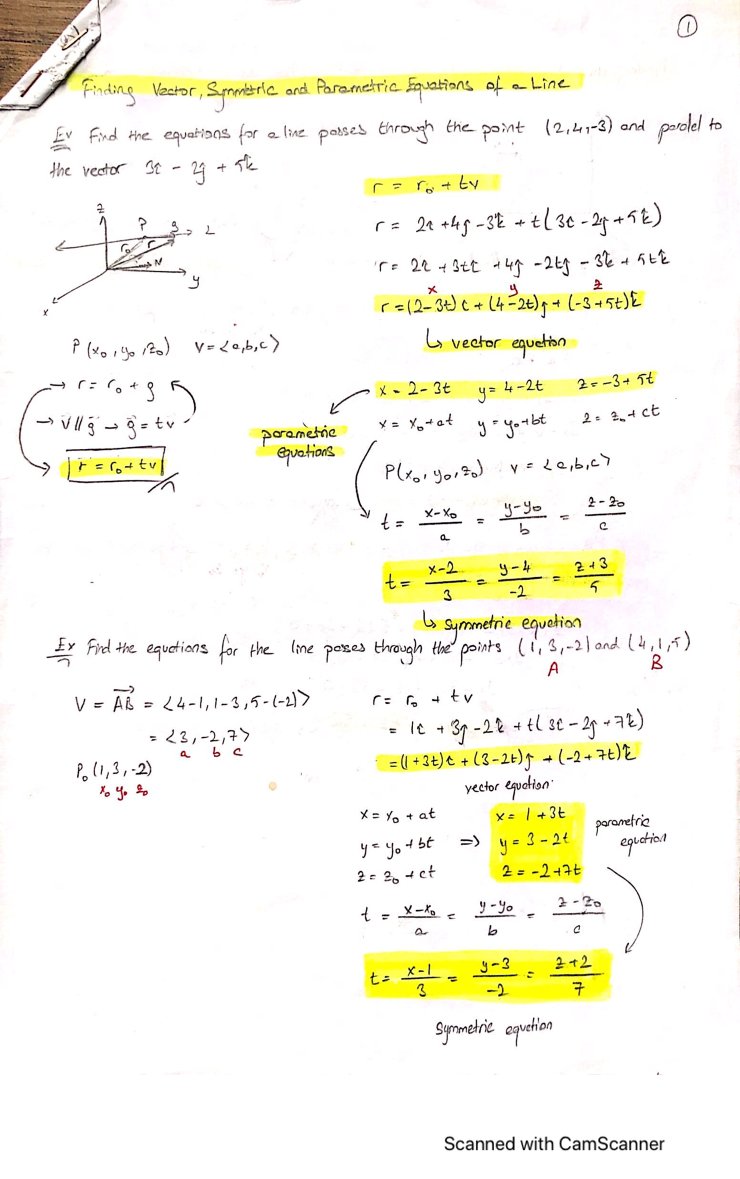 1
Finding Vector, Symmetric and Parametric Equations of a Line
Ex Find the equations for a line passes through the point (2,4,-3) and paralel to
the vector 3i - 2j + 5k
r = r₀ + tv
r = 2i + 4j - 3k + t(3i - 2j + 5k)
r = 2i + 3ti + 4j - 2tj - 3k + 5tk
x y z
r = (2-3t)i + (4-2t)j + (-3+5t)k
↳ vector equation
z
P
L
r₀ r
y
x
P(x₀, y₀, z₀) v = <a,b,c>
→ r = r₀ + g
→ v // g → g = tv
r = r₀ + tv
x = 2-3t y = 4-2t z = -3+5t
parametric
equations
x = x₀+at y = y₀+bt z = z₀+ct
P(x₀, y₀, z₀) v = <a,b,c>
t = (x-x₀)/a = (y-y₀)/b = (z-z₀)/c
t = (x-2)/3 = (y-4)/-2 = (z+3)/5
↳ symmetric equation
Ex Find the equations for the line passes through the points (1,3,-2) and (4,1,5)
A B
V = AB = <4-1, 1-3, 5-(-2)>
= <3, -2, 7>
a b c
P₀(1,3,-2)
x₀ y₀ z₀
r = r₀ + tv
= 1i + 3j - 2k + t(3i - 2j + 7k)
= (1+3t)i + (3-2t)j + (-2+7t)k
vector equation
x = x₀ + at
y = y₀ + bt
z = z₀ + ct
=> x = 1+3t
y = 3-2t
z = -2+7t
parametric
equation
t = (x-x₀)/a = (y-y₀)/b = (z-z₀)/c
t = (x-1)/3 = (y-3)/-2 = (z+2)/7
Symmetric equation
Scanned with CamScanner